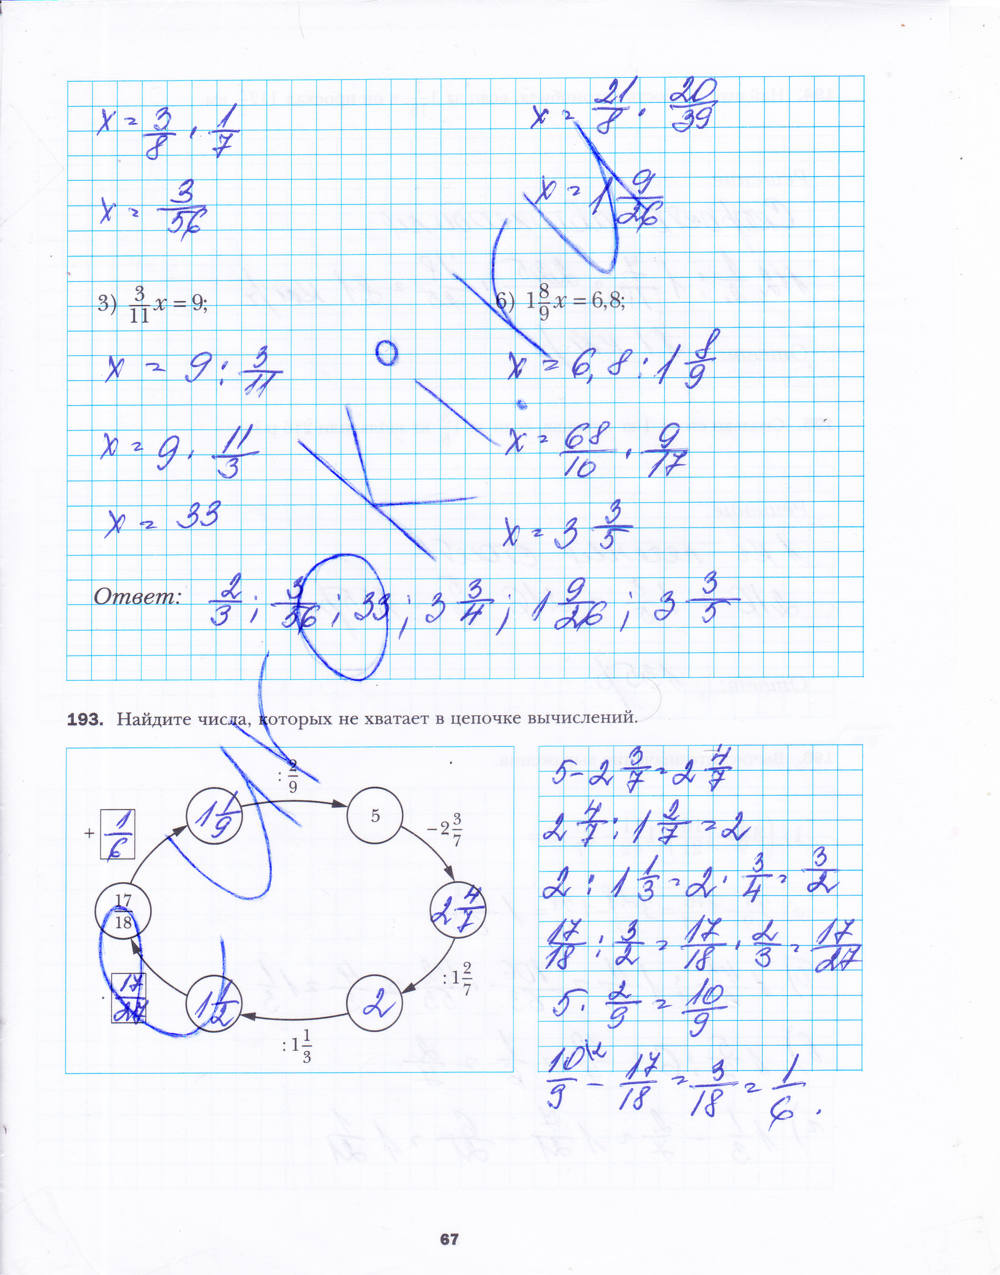 x = 3/8 · 1/7
x = 3/56
x = 21/8 · 20/39
x = 1 9/26
3) 3/11 x = 9;
x = 9 : 3/11
x = 9 · 11/3
x = 33
6) 1 8/9 x = 6,8;
x = 6,8 : 1 8/9
x = 68/10 · 9/17
x = 3 3/5
Ответ: 2/3; 3/56; 33; 3 3/4; 1 9/26; 3 3/5
193. Найдите числа, которых не хватает в цепочке вычислений.
: 2/9
+ 1/6
1 1/9
5
− 2 3/7
17/18
2 4/7
· 17/27
1 1/2
2
: 1 2/7
: 1 1/3
5 - 2 3/7 = 2 4/7
2 4/7 : 1 2/7 = 2
2 : 1 1/3 = 2 · 3/4 = 3/2
17/18 : 3/2 = 17/18 · 2/3 = 17/27
5 · 2/9 = 10/9
10/9 \2 - 17/18 = 3/18 = 1/6.
67